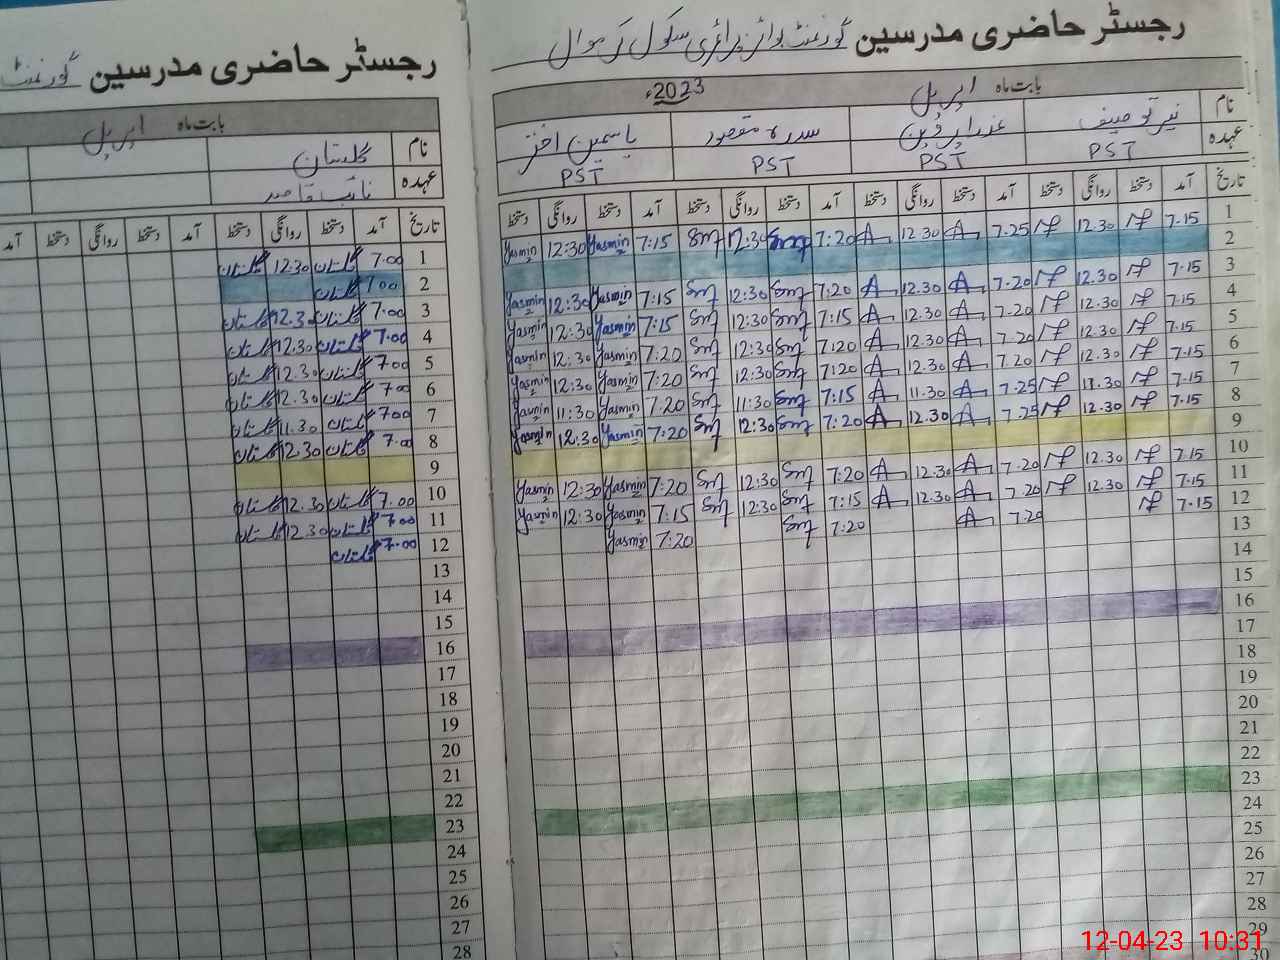 رجسٹر حاضری مدرسین گورنمنٹ بوائز پرائمری سکول
بابت ماہ اپریل 2023ء
نام سدرہ مقصود یاسمین اختر
عہدہ PST PST PST PST
تاریخ آمد دستخط روانگی دستخط آمد دستخط روانگی دستخط آمد دستخط روانگی دستخط آمد دستخط روانگی دستخط
1 7.15 12.30 7.25 12.30 7:20 12:30 7:15 Yasmin 12:30 Yasmin
2
3 7.15 12.30 7.20 12.30 7:20 12:30 7:15 Yasmin 12:30 Yasmin
4 7.15 12.30 7.20 12.30 7:15 12:30 7:15 Yasmin 12:30 Yasmin
5 7.15 12.30 7.20 12.30 7:20 12:30 7:20 Yasmin 12:30 Yasmin
6 7.15 12.30 7.20 12.30 7:20 12:30 7:20 Yasmin 12:30 Yasmin
7 7.15 11.30 7.25 11.30 7:15 11:30 7:20 Yasmin 11:30 Yasmin
8 7.15 12.30 7.25 12.30 7:20 12:30 7:20 Yasmin 12:30 Yasmin
9
10 7.15 12.30 7.20 12.30 7:20 12:30 7:20 Yasmin 12:30 Yasmin
11 7.15 12.30 7.20 12.30 7:15 12:30 7:15 Yasmin 12:30 Yasmin
12 7.15 7.20 7:20 7:20 Yasmin
13
14
15
16
17
18
19
20
21
22
23
24
25
26
27
28
29
30
رجسٹر حاضری مدرسین گورنمنٹ
بابت ماہ اپریل
نام گلستان
عہدہ نائب قاصد
تاریخ آمد دستخط روانگی دستخط آمد دستخط روانگی دستخط آمد
1 7.00 گلستان 12.30 گلستان
2 7.00 گلستان
3 7.00 گلستان 12.30 گلستان
4 7.00 گلستان 12.30 گلستان
5 7.00 گلستان 12.30 گلستان
6 7.00 گلستان 12.30 گلستان
7 7.00 گلستان 11.30 گلستان
8 7.00 گلستان 12.30 گلستان
9
10 7.00 گلستان 12.30 گلستان
11 7.00 گلستان 12.30 گلستان
12 7.00 گلستان
13
14
15
16
17
18
19
20
21
22
23
24
25
26
27
28
12-04-23 10:31